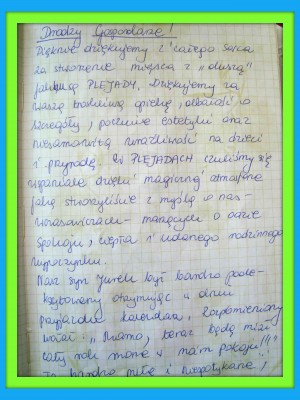 Drodzy Gospodarze!
Pięknie dziękujemy z całego serca
za stworzenie miejsca z "duszą"
jakim są PLEJADY. Dziękujemy za
waszą troskliwą opiekę, dbałość o
szczegóły, poczucie estetyki oraz
niesamowitą wrażliwość na dzieci
i przyrodę. W PLEJADACH czuliśmy się
wspaniale dzięki magicznej atmosferze
jaką stworzyliście z myślą o nas -
warszawiakach - marzących o oazie
spokoju, ciepła i udanego rodzinnego
wypoczynku.
Nasz syn Jurek był bardzo pode-
kscytowany otrzymując w dniu
przyjazdu kalendarz, rozpromieniony
wołał: "Mamo, teraz będę miał
cały rok morze w moim pokoju!!!"
To bardzo miłe i niespotykane!